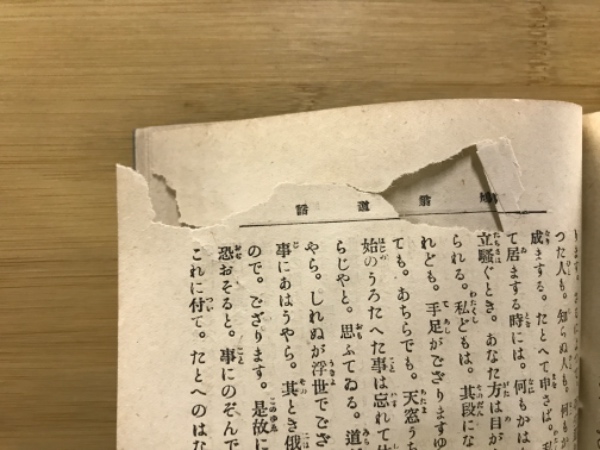 鳩翁道話
つた人も。知らぬ人も。何もか
成まする。たとへて申さば。
て居まする時には。何もかは
立騒ぐとき。あなた方は目が
られる。私どもは。其段にな
れども。手足がござりますゆ
ても。あちらでも。天窓うち
始のうろたへた事は忘れて
らじやと。思ふてゐる。道
やら。しれぬが浮世でござ
事にあはうやら。其とき俄
ので。ござります。是故に
恐おそると。事にのぞんで
これに付て。たとへのはな